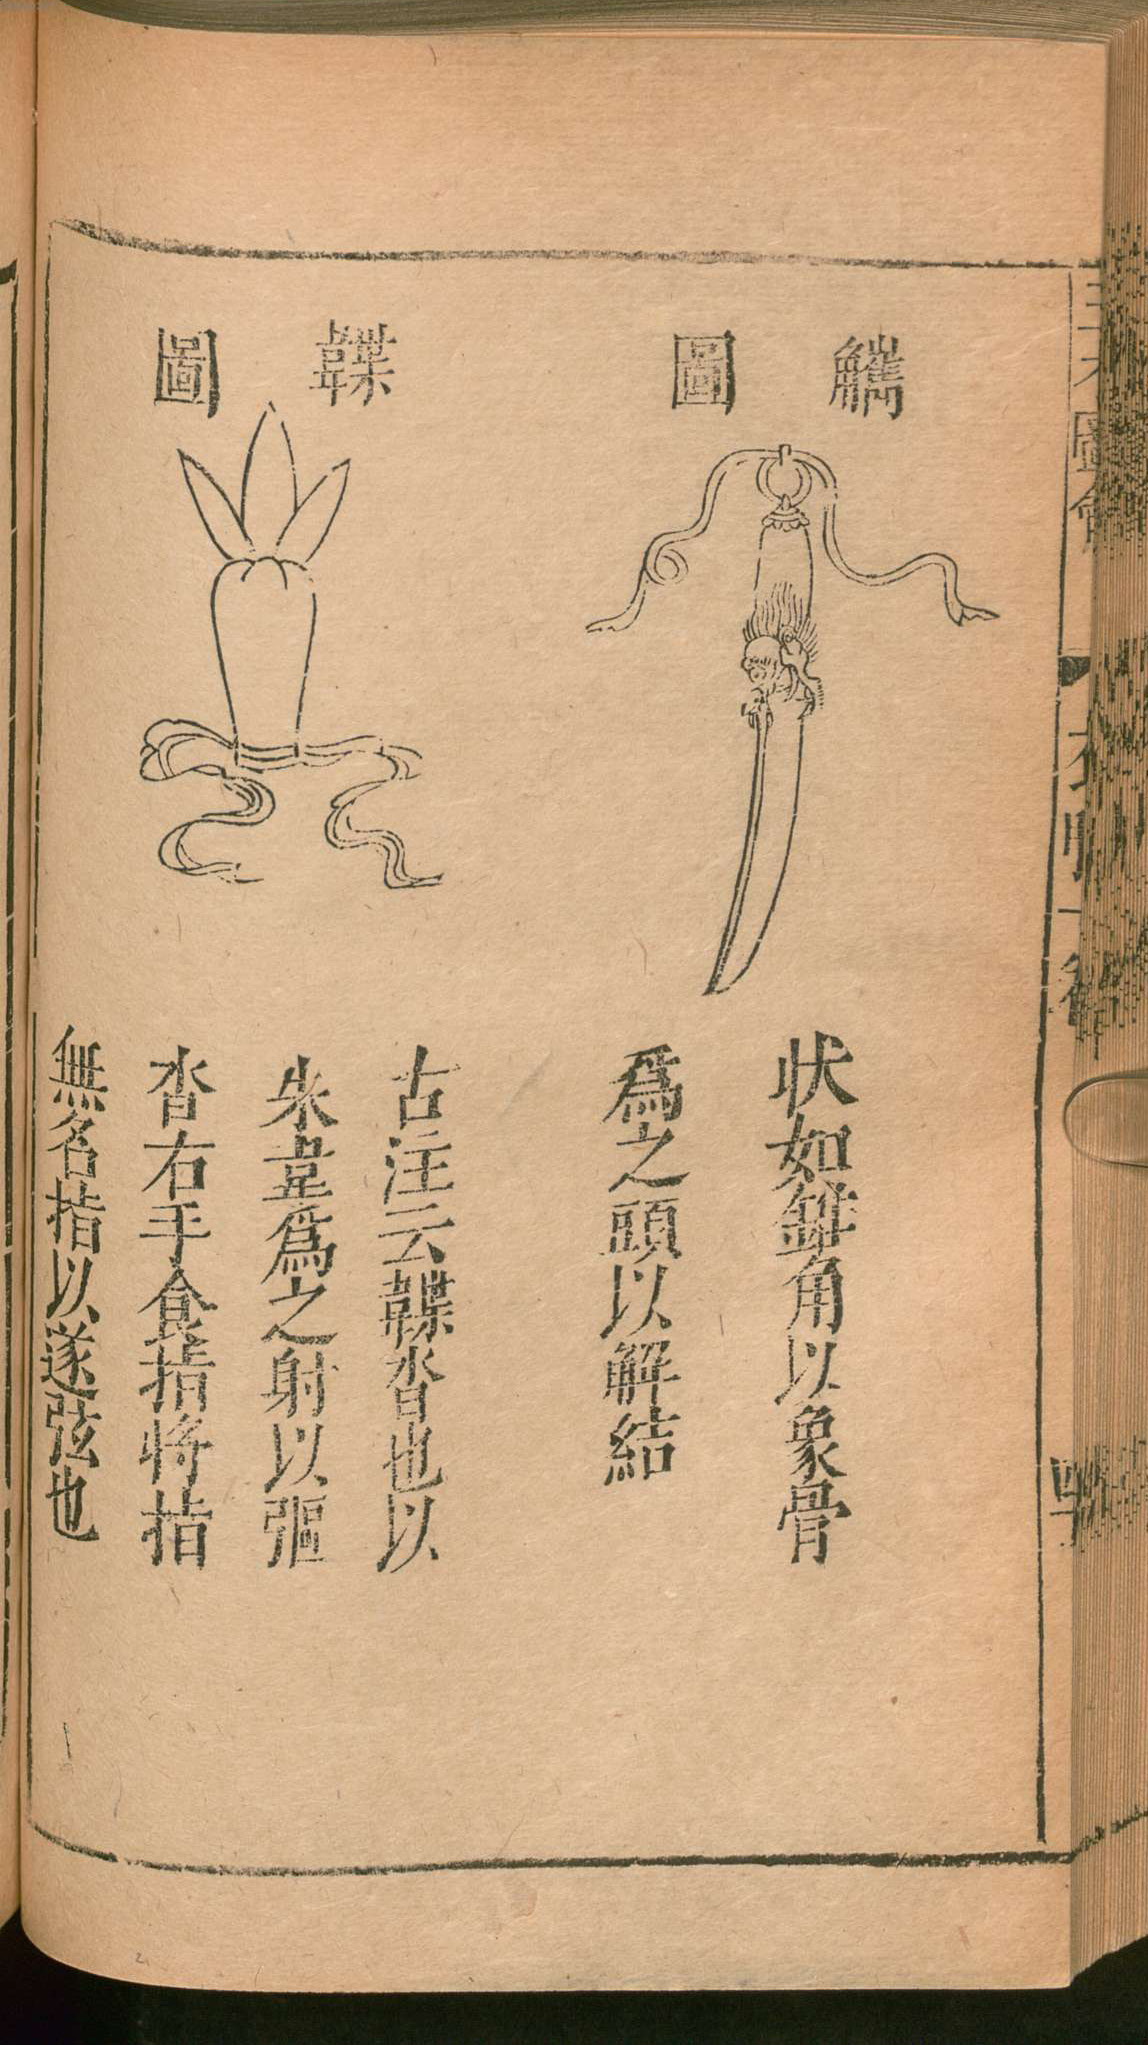 觿圖
狀如錐角以象骨
爲之頭以解結
韘圖
古注云韘沓也以
朱韋爲之射以彄
沓右手食指將指
無名指以遂弦也